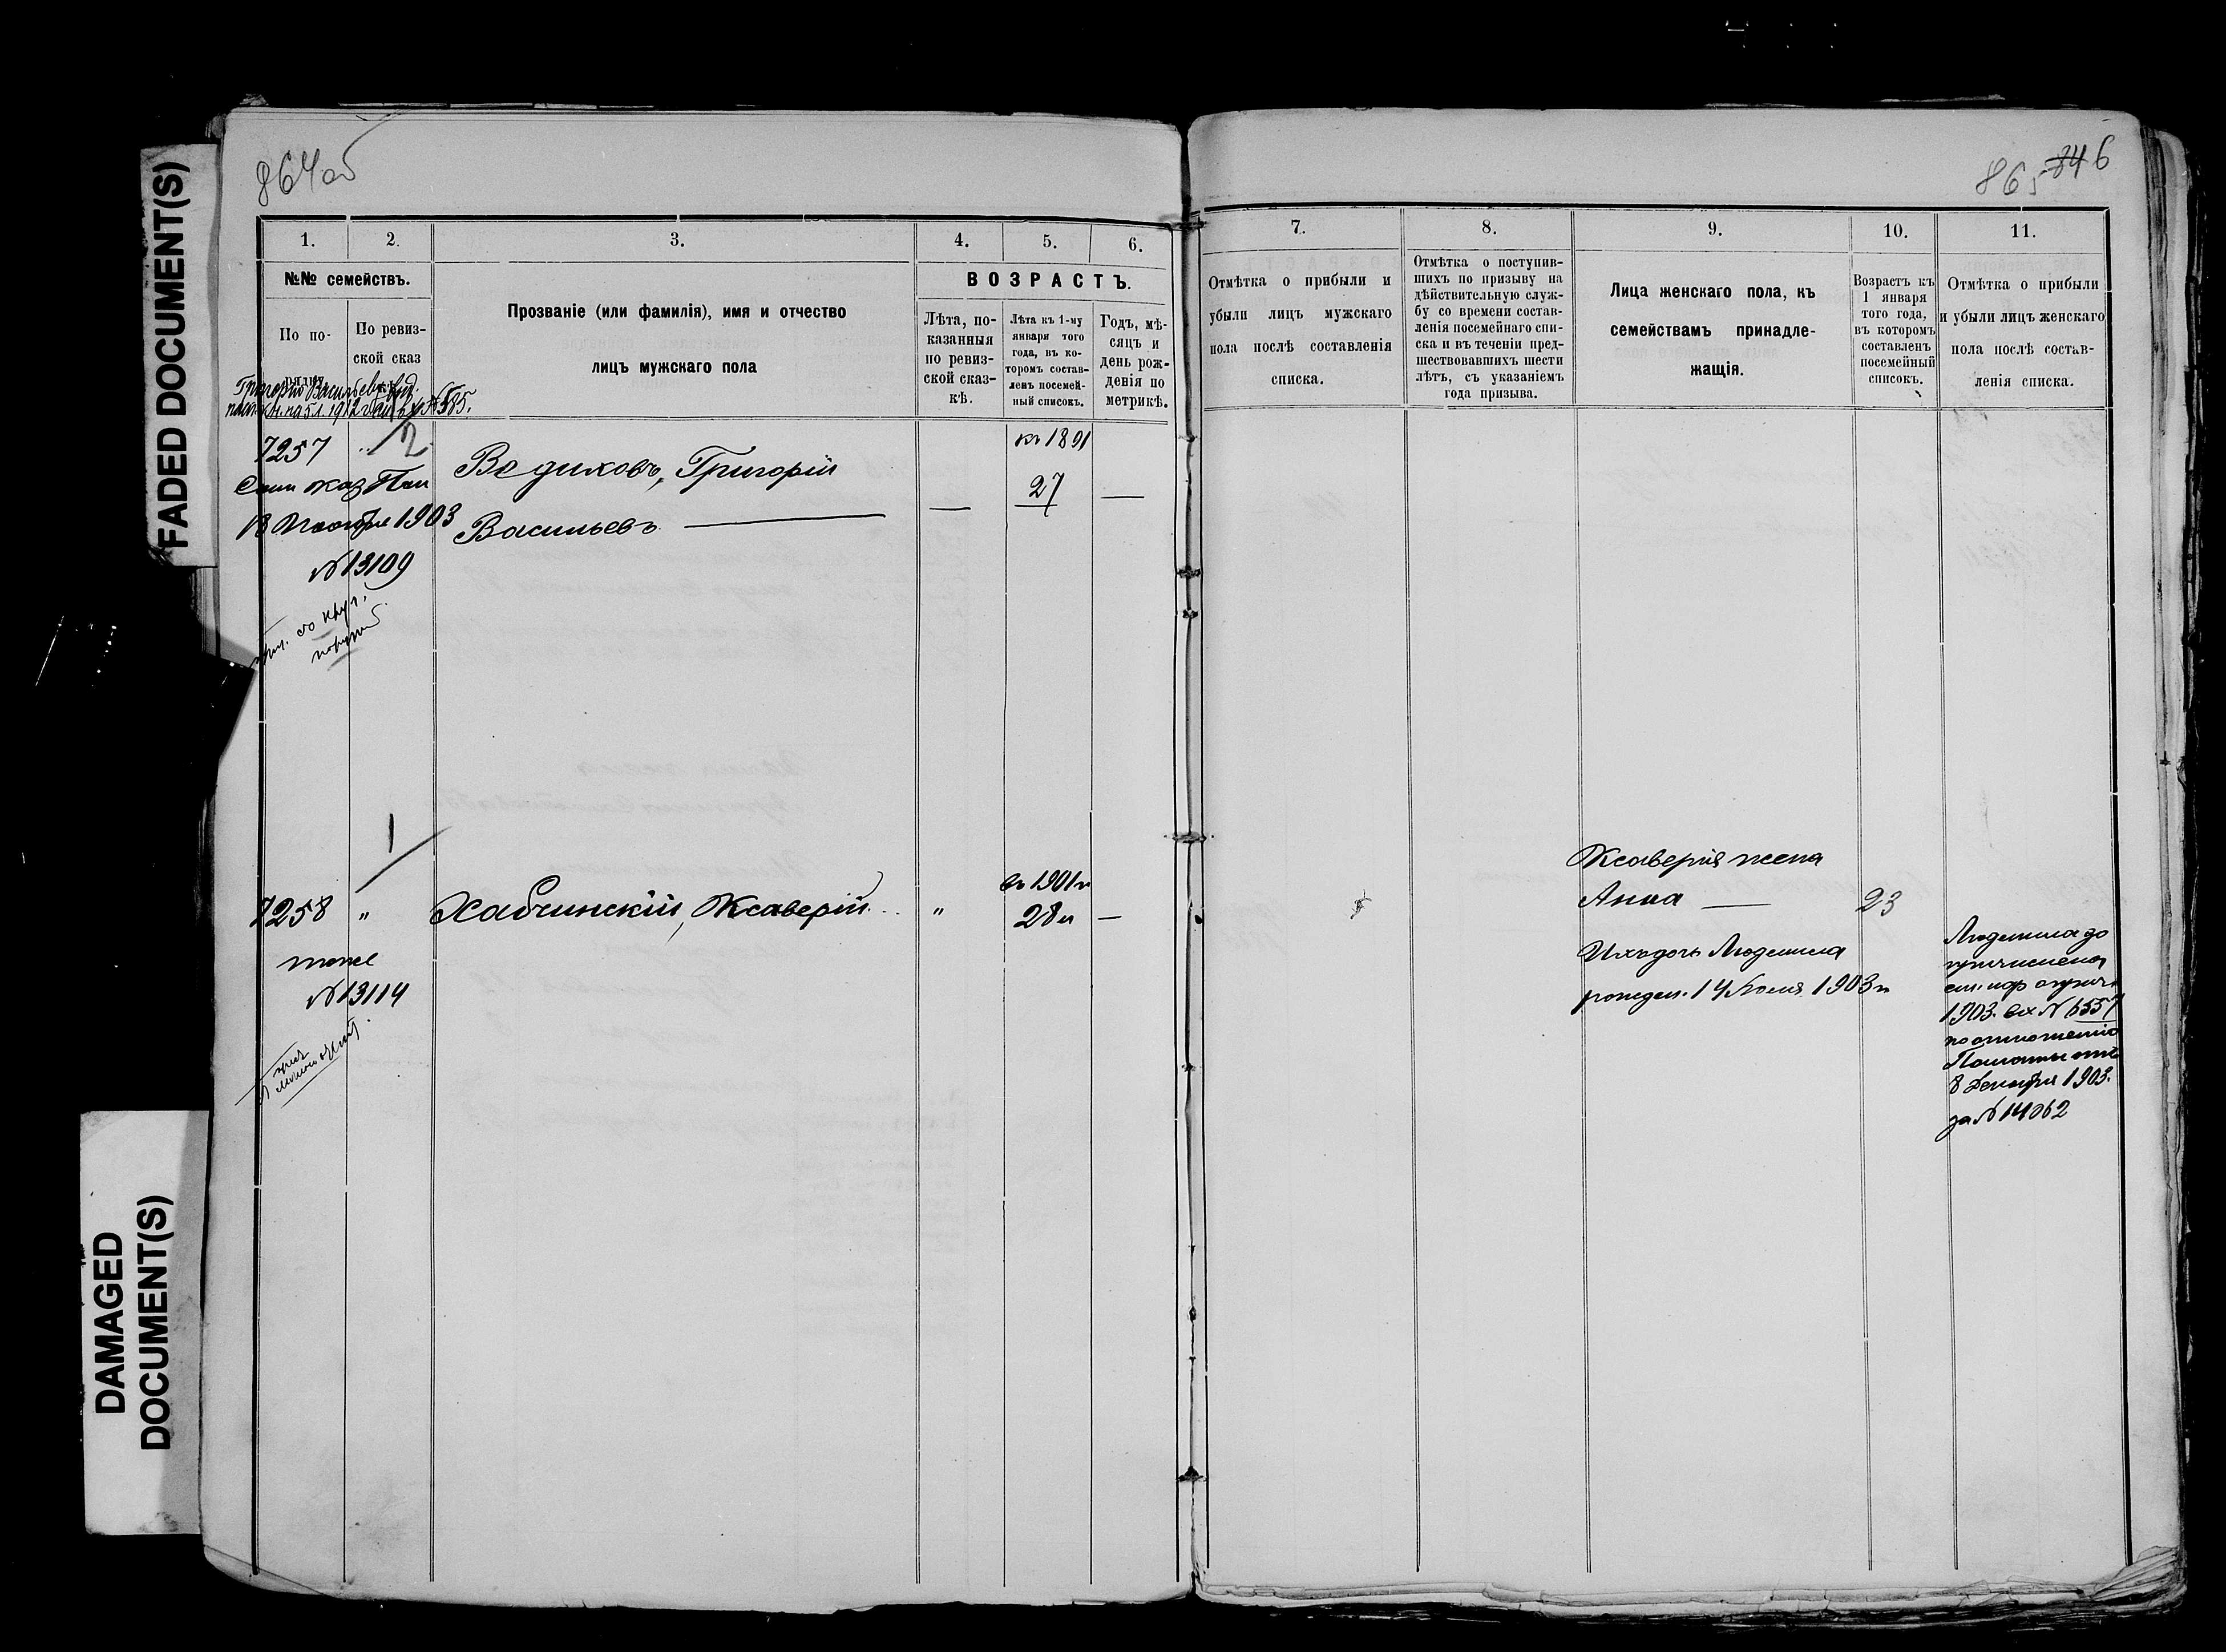 FADED DOCUMENT(S)
DAMAGED
DOCUMENT(S)
864об
1.
2.
3.
4.
5.
6.
№№ семействъ.
По по-
рядку.
По ревиз-
ской сказ
Прозваніе (или фамилія), имя и отчество
лицъ мужскаго пола
ВОЗРАСТЪ.
Лѣта, по-
казанныя
по ревиз-
ской сказ-
кѣ.
Лѣта къ 1-му
января того
года, въ ко-
торомъ состав-
ленъ посемей-
ный списокъ.
Годъ, мѣ-
сяцъ и
день рож-
денія по
метрикѣ.
Григорію Васильеву выд.
7257 " 2
къ 1891
Григорій
27
Васильевъ
18 Ноября 1903
№ 13109
со круг.
порукой
1
7258 "
Хабчинскій, Ксаверій
"
въ 1901 г
28 л
тоже
№ 13114
865 846
7.
8.
9.
10.
11.
Отмѣтка о прибыли и
убыли лицъ мужскаго
пола послѣ составленія
списка.
Отмѣтка о поступив-
шихъ по призыву на
дѣйствительную служ-
бу со времени состав-
ленія посемейнаго спи-
ска и въ теченіи пред-
шествовавшихъ шести
лѣтъ, съ указаніемъ
года призыва.
Лица женскаго пола, къ
семействамъ принадле-
жащія.
Возрастъ къ
1 января
того года,
въ которомъ
составленъ
посемейный
списокъ.
Отмѣтка о прибыли
и убыли лицъ женскаго
пола послѣ состав-
ленія списка.
Ксаверія жена
Анна 23
Ихъ дочь Людмила
рожден. 14 Іюля 1903 г
Людмила до
причислена
1903. вх № 6557
по отношенію
Палаты отъ
8 Декабря 1903.
за № 14062